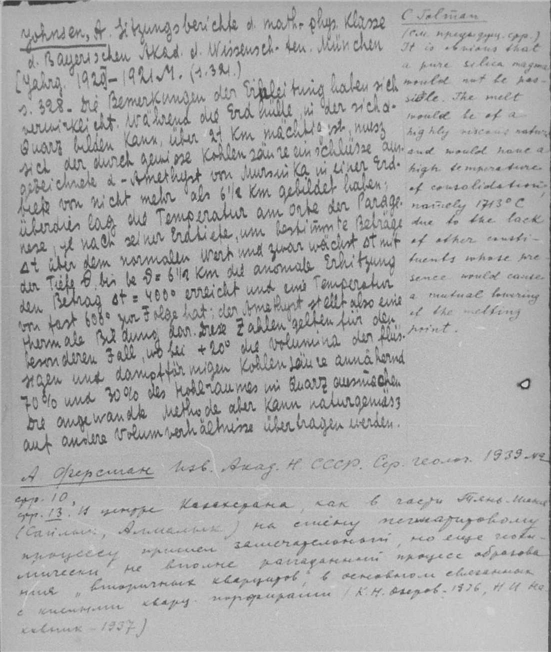 Johnsen, A. Sitzungsberichte d. math-phys Klasse
d. Bayerischen Akad. d. Wissensch-ten. München
(Jahrg. 1920-1921. M. (1.321.)
s. 328. Die Bemerkungen der Einleitung haben sich
verwirklicht. Während die Erdhülle, in der sich α-
Quarz bilden kann, über 27 km mächtig ist, muss
sich der durch gewisse Kohlensäureeinschlüsse aus
gezeichnete α-Amethyst von Mursinka in einer Erd-
tiefe von nicht mehr als 6½ km gebildet haben;
überdies lag die Temperatur am Orte der Parage-
nese, je nach seiner Erdtiefe, um bestimmte Beträge
Δt über dem normalen Wert und zwar wächst Δt mit
der Tiefe ϑ, bis be ϑ = 6½ km die anomale Erhitzung
den Betrag Δt = 400° erreicht und eine Temperatur
von fast 600° zur Folge hat; der Amethyst stellt also eine
thermale Bildung dar. Diese Zahlen gelten für den
besonderen Fall, wo bei +20° die Volumina der flüs-
sigen und dampfförmigen Kohlensäure annähernd
70% und 30% des Hohlraumes im Quarz ausmachen
Die angewandte Methode aber kann naturgemäsz
auf andere Volumverhältnisse übertragen werden.
C. Tolman
(См. предыдущ. стр.)
It is obvious that
a pure silica magma
would not be pos-
sible. The melt
would be of a
highly viscous nature
and would have a
high temperature
of consolidation,
namely 1713°C
due to the lack
of other consti-
tuents whose pre
sence would cause
a mutual lowering
of the melting
point.
А. Ферсман Изв. Акад. Н. СССР. Сер. геолог. 1939 №
стр. 10,
стр. 13. В центре Казахстана, как в части Тянь-Шаня
(Алмалык) на смену пегматитовому
процессу пришел замечательный, но еще геохи-
мически не вполне разгаданный процесс образова
ния "вторичных кварцитов", в основном связанных
с кварц. порфирами (К.Н. Озеров-1936, Н.И. На
ковник-1937.)